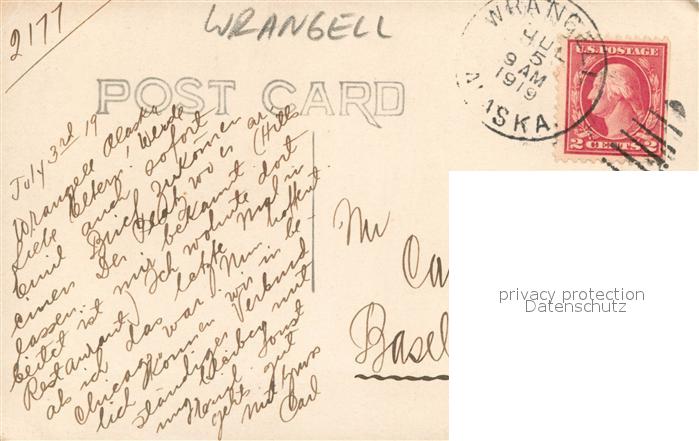 2177
WRANGELL
POST CARD
WRANGELL
JUL
5
9 AM
1919
ALASKA
U.S. POSTAGE
2 CENTS 2
July 3rd 19
Wrangell Alaska
Liebe Eltern! Werde
Emil auch sofort
einen Brief zukommen
lassen. Der Platz wo er ar-
beitet ist mir bekannt (Hills
Restaurant) Ich wohnte dort
als ich das letzte Mal in
Chicago war. Nun hoffent
lich können wir in be-
ständiger Verbind
ung bleiben mit
Sonst
gehts gut
Mit Gruss
Carl
Mr
Ca
Basel
privacy protection
Datenschutz